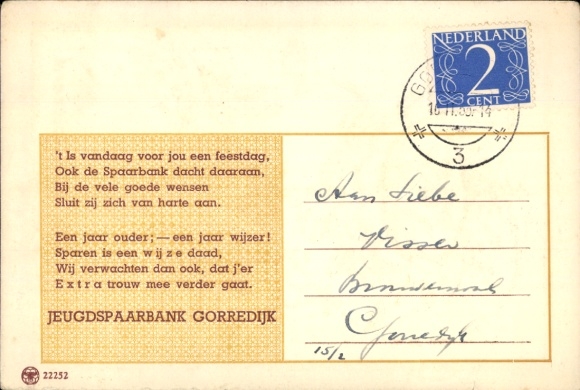 NEDERLAND
2
CENT
3
't Is vandaag voor jou een feestdag,
Ook de Spaarbank dacht daaraan,
Bij de vele goede wensen
Sluit zij zich van harte aan.
Een jaar ouder; — een jaar wijzer!
Sparen is een wijze daad,
Wij verwachten dan ook, dat j'er
Extra trouw mee verder gaat.
JEUGDSPAARBANK GORREDIJK
Aan Siebe
Visser
Gorredijk
15/2
22252